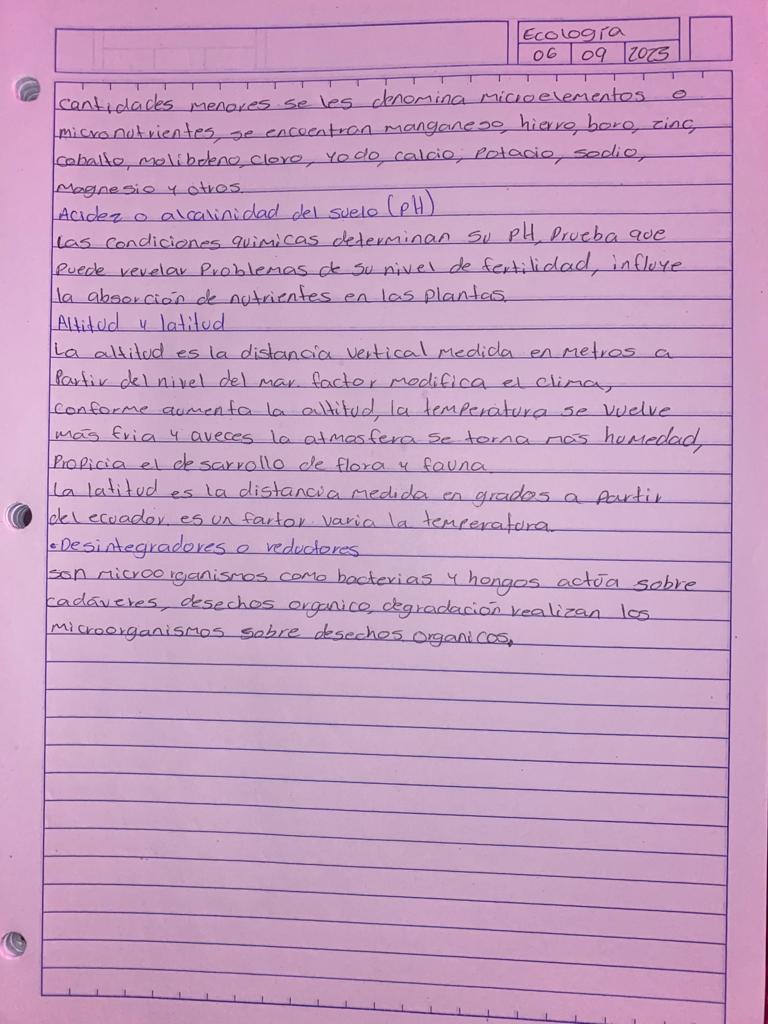 Ecología
06 09 2023
cantidades menores se les denomina microelementos o
micronutrientes, se encuentran manganeso, hierro, boro, zinc,
cobalto, molibdeno, cloro, yodo, calcio, Potacio, sodio,
Magnesio y otros.
Acidez o alcalinidad del suelo (PH)
Las condiciones quimicas determinan su PH, Prueba que
Puede revelar Problemas de su nivel de fertilidad, influye
la absorción de nutrientes en las Plantas.
Altitud y latitud
La altitud es la distancia vertical medida en metros a
Partir del nivel del mar. factor modifica el clima,
conforme aumenta la altitud, la temperatura se vuelve
más fria y aveces la atmasfera se torna más humedad,
Propicia el desarrollo de flora y fauna.
La latitud es la distancia medida en grados a Partir
del ecuador. es un fartor varia la temperatura.
•Desintegradores o reductores
son microorganismos como bacterias y hongos actúa sobre
cadáveres, desechos organico, degradación realizan los
microorganismos sobre desechos organicos.